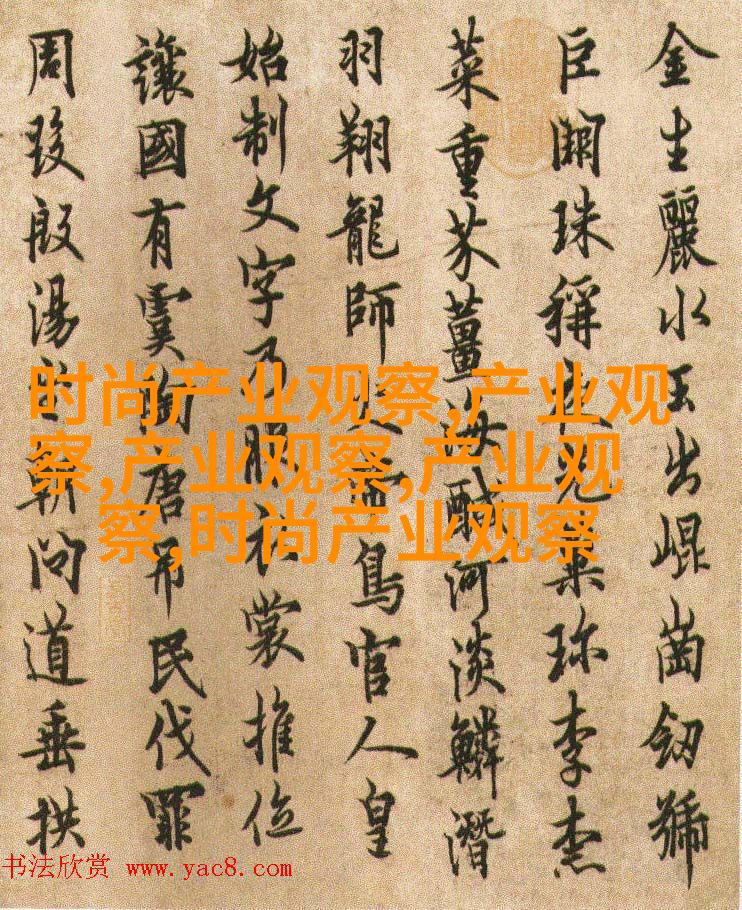 金生麗水玉出崐崗劒號
巨闕珠稱夜光果珎李柰
菜重芥薑海醎河淡鱗潛
羽翔龍師火帝鳥官人皇
始制文字乃服衣裳推位
讓國有虞陶唐弔民伐罪
周發殷湯坐朝問道垂拱
时尚产业观察,产业观
察,产业观察,产业观
察,时尚产业观察
书法欣赏 www.yac8.com